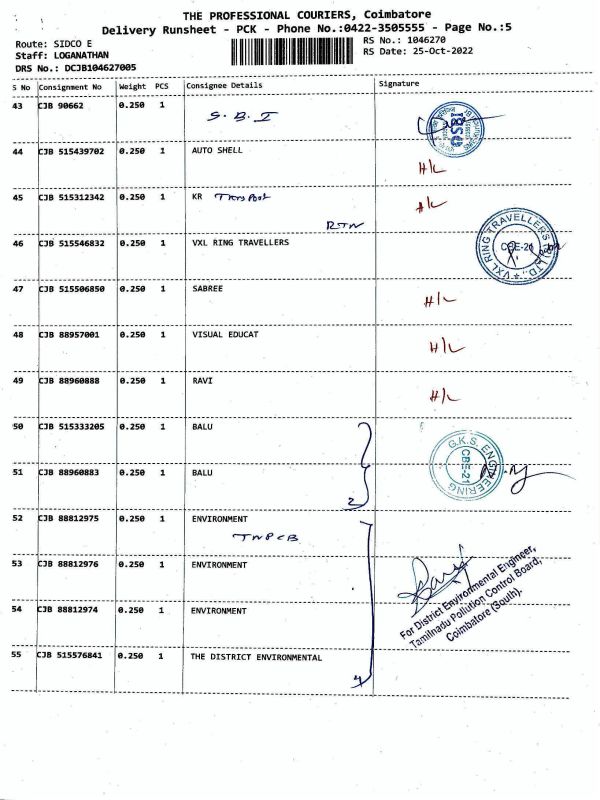 THE PROFESSIONAL COURIERS, Coimbatore
Delivery Runsheet - PCK - Phone No.:0422-3505555 - Page No.:5
Route: SIDCO E
RS No.: 1046270
Staff: LOGANATHAN
RS Date: 25-Oct-2022
DRS No.: DCJB104627005
S No Consignment No Weight PCS Consignee Details Signature
43 CJB 90662 0.250 1
S. B. I
44 CJB 515439702 0.250 1 AUTO SHELL
H/L
45 CJB 515312342 0.250 1 KR
H/L
RTN
46 CJB 515546832 0.250 1 VXL RING TRAVELLERS
VXL RING TRAVELLERS (P) LTD.,
CBE-21
47 CJB 515506850 0.250 1 SABREE
H/L
48 CJB 88957001 0.250 1 VISUAL EDUCAT
H/L
49 CJB 88960888 0.250 1 RAVI
H/L
50 CJB 515333205 0.250 1 BALU
G.K.S. ENGINEERING
CBE-21
51 CJB 88960883 0.250 1 BALU
2
52 CJB 88812975 0.250 1 ENVIRONMENT
TNPCB
53 CJB 88812976 0.250 1 ENVIRONMENT
54 CJB 88812974 0.250 1 ENVIRONMENT
For District Environmental Engineer,
Tamilnadu Pollution Control Board,
Coimbatore (South).
55 CJB 515576841 0.250 1 THE DISTRICT ENVIRONMENTAL
4